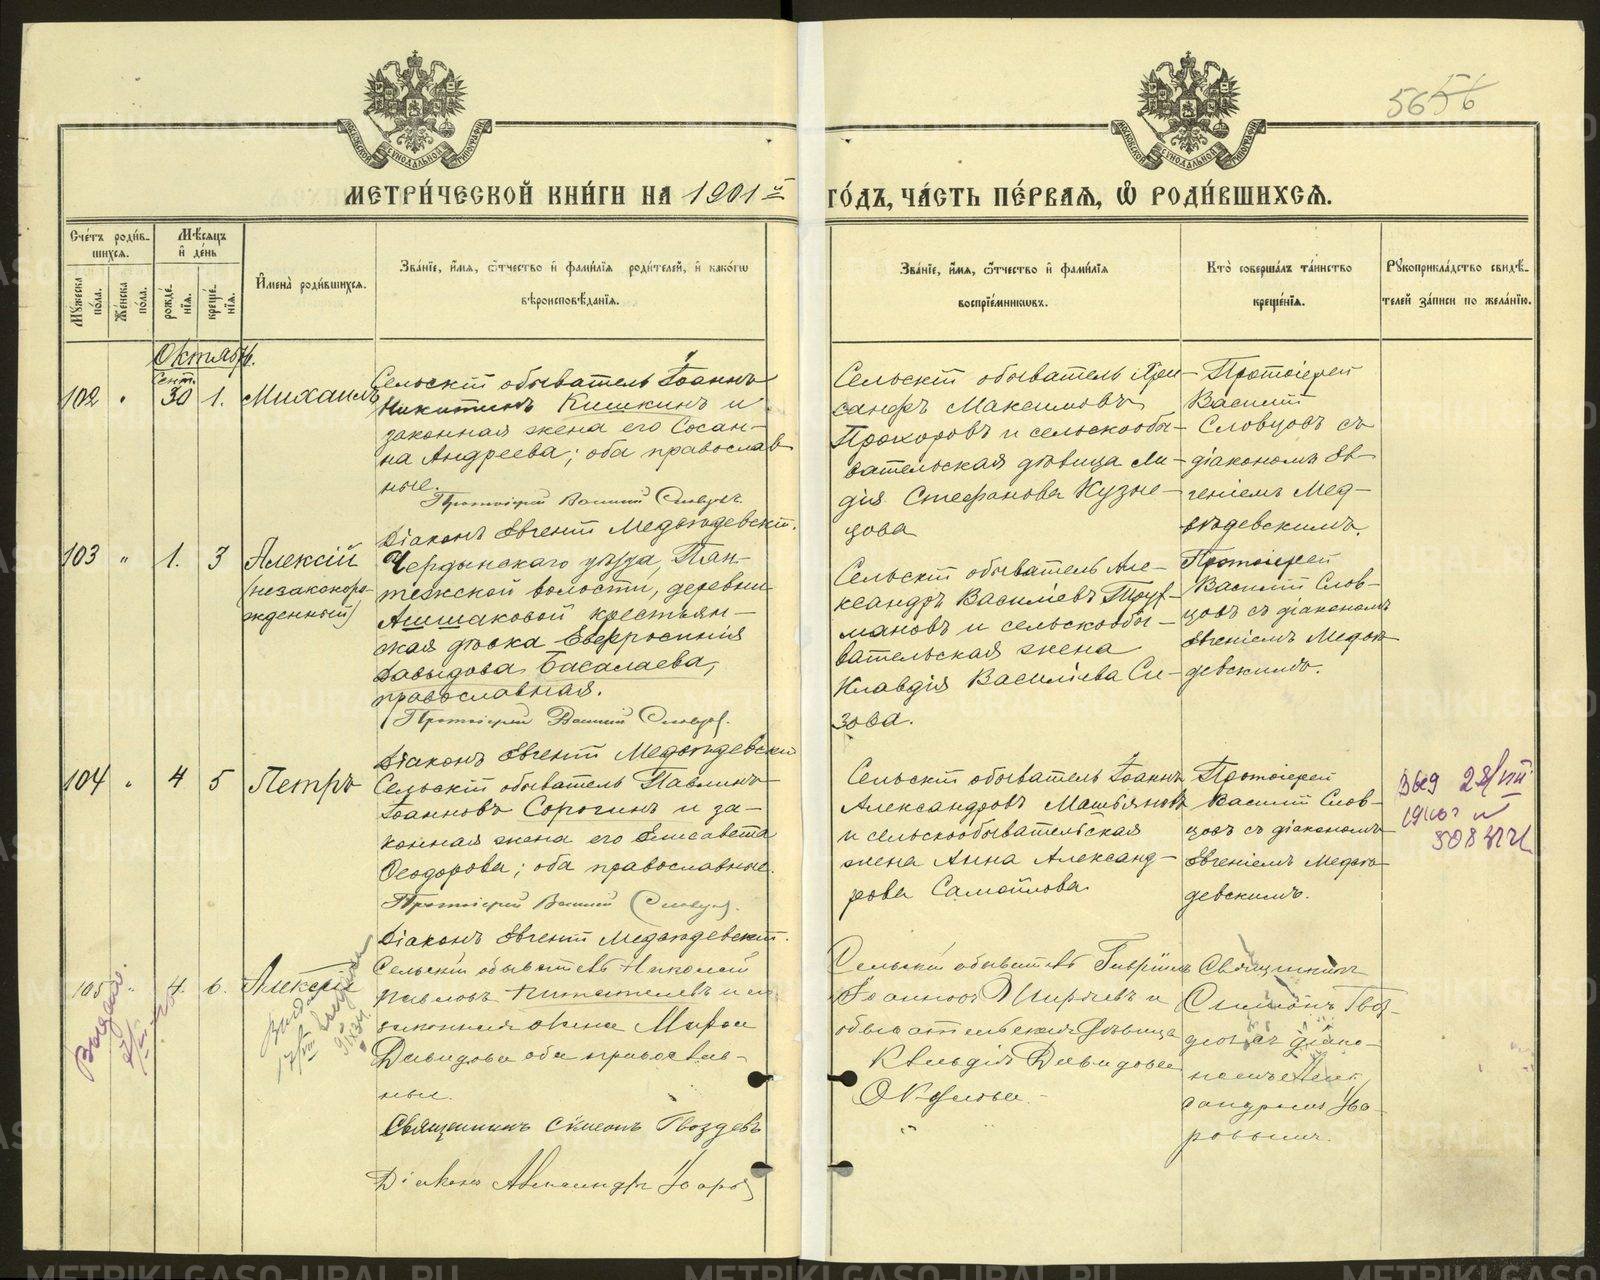 5656
МЕТРИ́ЧЕСКОЙ КНИ́ГИ НА 1901й
ГО́ДЪ, ЧА́СТЬ ПЕ́РВАѦ, Ѡ РОДИ́ВШИХСѦ.
Сче́тъ роди́в-
шихсѧ.
Мѣ́сѧцъ
и де́нь
Мꙋжеска по́ла.
Же́нска по́ла.
рожде́нїѧ.
креще́нїѧ.
Имена̀ роди́вшихсѧ.
Зва́нїе, и́мѧ, ѻ́тчество и фами́лїѧ роди́телей, и како́гѡ
вѣроисповѣ́данїѧ.
Зва́нїе, и́мѧ, ѻ́тчество и фами́лїѧ
воспрїе́мниковъ.
Кто̀ соверша́лъ та́инство
креще́нїѧ.
Рꙋкоприкла́дство свидѣ́-
телей за́писи по жела́нїю.
Октябрь.
Сент.
102 " 30 1. Михаилъ
Сельскій обыватель Іоаннъ
Никитинъ Кишкинъ и
законная жена его Сосан-
на Андреева; оба православ
ные.
Протоіерей Василій Словцовъ
Діаконъ Евгеній Медвѣдевскій.
Сельскій обыватель
сандръ Максимовъ
Прохоровъ и сельскообы-
вательская дѣвица Ли-
дія Стефанова Кузне-
цова
Протоіерей
Василій
Словцовъ съ
діакономъ Ев-
геніемъ Мед-
вѣдевскимъ.
103 " 1. 3 Алексій
(незаконоро-
жденный)
Чердынскаго уѣзда, Пян-
тежской волости, деревни
Амшаковой крестьян-
ская дѣвка Евфросинія
Давыдова Басалаева,
православная.
Протоіерей Василій Словцов.
Діаконъ Евгеній Медвѣдевскій
Сельскій обыватель Але-
ксандръ Василіевъ Трух-
мановъ и сельскообы-
вательская жена
Клавдія Василіева Си-
зова.
Протоіерей
Василій Слов-
цовъ съ діакономъ
Евгеніемъ Медвѣ-
девскимъ.
104 " 4 5 Петръ
Сельскій обыватель Павлинъ
Іоанновъ Сорогинъ и за-
конная жена его Елисавета
Ѳеодорова; оба православные.
Протоіерей Василій Словцов.
Діаконъ Евгеній Медвѣдевскій.
Сельскій обыватель Іоаннъ
Александровъ Мальяновъ
и сельскообывательская
жена Анна Александ-
рова Самойлова.
Протоіерей
Василій Слов-
цовъ съ діакономъ
Евгеніемъ Медвѣ-
девскимъ.
105 " 4. 6. Алексѣй
Сельскій обыватель Николай
Павловъ и за-
конная жена Марѳа
Давидова оба православ-
ные.
Священникъ Симеонъ Гвоздевъ
Діаконъ Александръ Уваровъ
Сельскій обыватель Гавріилъ
Іоанновъ Ширяевъ и
обывательская дѣвица
Клавдія Давидова
Окулова.
Священникъ
Симеонъ Гвоз-
девъ съ діако-
номъ Алек-
сандромъ Ува-
ровымъ.